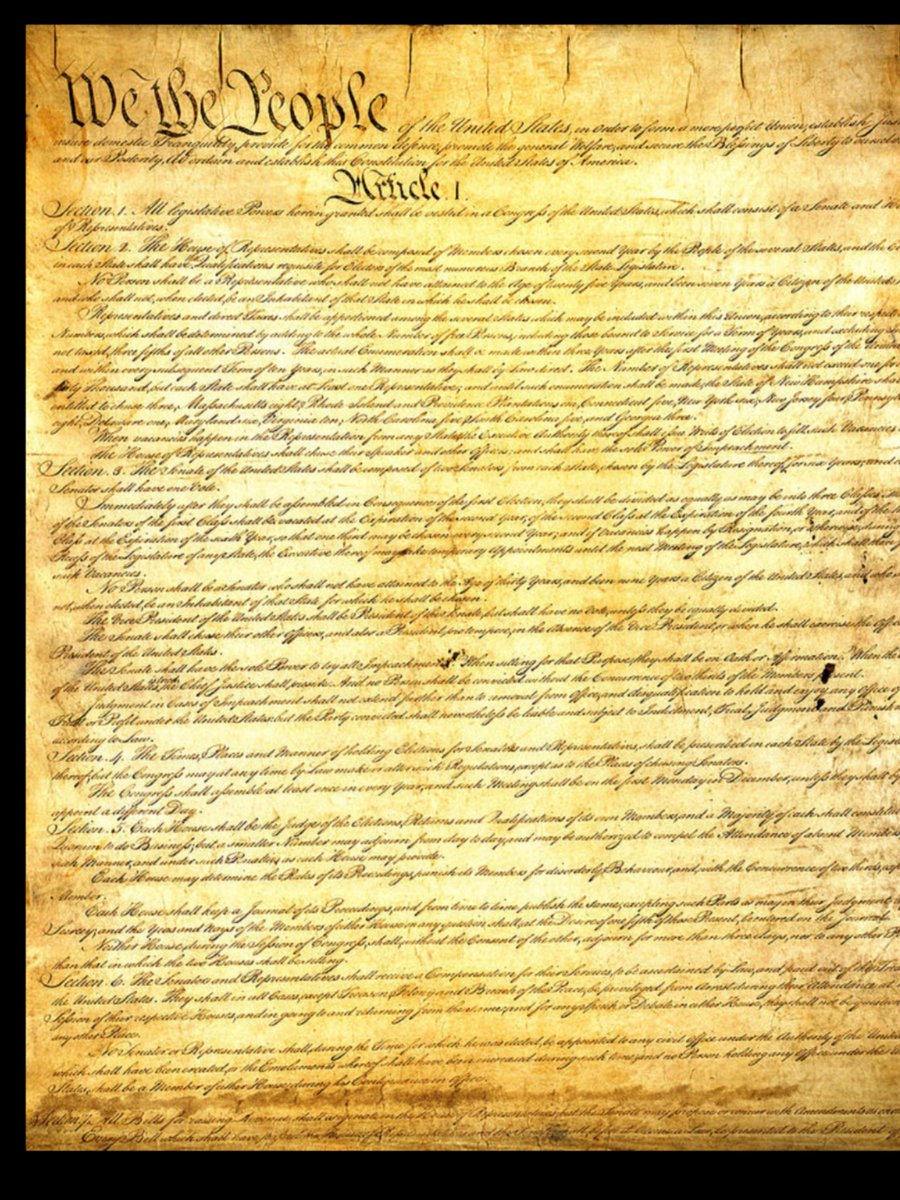 We the People of the United States, in Order to form a more perfect Union, establish Just
insure domestic Tranquility, provide for the common defence, promote the general Welfare, and secure the Blessings of Liberty to oursel
and our Posterity, do ordain and establish this Constitution for the United States of America.
Article. I.
Section. 1. All legislative Powers herein granted shall be vested in a Congress of the United States, which shall consist of a Senate and
of Representatives.
Section. 2. The House of Representatives shall be composed of Members chosen every second Year by the People of the several States, and the
in each State shall have Qualifications requisite for Electors of the most numerous Branch of the State Legislature.
No Person shall be a Representative who shall not have attained to the Age of twenty five Years, and been seven Years a Citizen of the United
and who shall not, when elected, be an Inhabitant of that State in which he shall be chosen.
Representatives and direct Taxes shall be apportioned among the several States which may be included within this Union, according to their respect
Numbers, which shall be determined by adding to the whole Number of free Persons, including those bound to Service for a Term of Years, and excluding
not taxed, three fifths of all other Persons. The actual Enumeration shall be made within three Years after the first Meeting of the Congress of the United
and within every subsequent Term of ten Years, in such Manner as they shall by Law direct. The Number of Representatives shall not exceed one for
thirty Thousand, but each State shall have at Least one Representative; and until such enumeration shall be made, the State of New Hampshire shal
entitled to chuse three, Massachusetts eight, Rhode-Island and Providence Plantations one, Connecticut five, New-York six, New Jersey four, Pennsyl
eight, Delaware one, Maryland six, Virginia ten, North Carolina five, South Carolina five, and Georgia three.
When vacancies happen in the Representation from any State, the Executive Authority thereof shall issue Writs of Election to fill such Vacancies.
The House of Representatives shall chuse their Speaker and other Officers; and shall have the sole Power of Impeachment.
Section. 3. The Senate of the United States shall be composed of two Senators from each State, chosen by the Legislature thereof, for six Years; and
Senator shall have one Vote.
Immediately after they shall be assembled in Consequence of the first Election, they shall be divided as equally as may be into three Classes.
of the Senators of the first Class shall be vacated at the Expiration of the second Year, of the second Class at the Expiration of the fourth Year, and of the
Class at the Expiration of the sixth Year, so that one third may be chosen every second Year; and if Vacancies happen by Resignation, or otherwise, during
Recess of the Legislature of any State, the Executive thereof may make temporary Appointments until the next Meeting of the Legislature, which shall then
such Vacancies.
No Person shall be a Senator who shall not have attained to the Age of thirty Years, and been nine Years a Citizen of the United States, and who
not, when elected, be an Inhabitant of that State for which he shall be chosen.
The Vice President of the United States shall be President of the Senate, but shall have no Vote, unless they be equally divided.
The Senate shall chuse their other Officers, and also a President pro tempore, in the Absence of the Vice President, or when he shall exercise the Offic
President of the United States.
The Senate shall have the sole Power to try all Impeachments. When sitting for that Purpose, they shall be on Oath or Affirmation. When the
of the United States is tried, the Chief Justice shall preside: And no Person shall be convicted without the Concurrence of two thirds of the Members present.
Judgment in Cases of Impeachment shall not extend further than to removal from Office, and disqualification to hold and enjoy any Office of
Trust or Profit under the United States: but the Party convicted shall nevertheless be liable and subject to Indictment, Trial, Judgment and Punish
according to Law.
Section. 4. The Times, Places and Manner of holding Elections for Senators and Representatives, shall be prescribed in each State by the Legisl
thereof; but the Congress may at any time by Law make or alter such Regulations, except as to the Places of chusing Senators.
The Congress shall assemble at least once in every Year, and such Meeting shall be on the first Monday in December, unless they shall by
appoint a different Day.
Section. 5. Each House shall be the Judge of the Elections, Returns and Qualifications of its own Members, and a Majority of each shall constitut
Quorum to do Business; but a smaller Number may adjourn from day to day, and may be authorized to compel the Attendance of absent Members
such Manner, and under such Penalties as each House may provide.
Each House may determine the Rules of its Proceedings, punish its Members for disorderly Behaviour, and, with the Concurrence of two thirds,
Member.
Each House shall keep a Journal of its Proceedings, and from time to time publish the same, excepting such Parts as may in their Judgment
Secrecy; and the Yeas and Nays of the Members of either House on any question shall, at the Desire of one fifth of those Present, be entered on the Journal.
Neither House, during the Session of Congress, shall, without the Consent of the other, adjourn for more than three days, nor to any other
than that in which the two Houses shall be sitting.
Section. 6. The Senators and Representatives shall receive a Compensation for their Services, to be ascertained by Law, and paid out of the Trea
the United States. They shall in all Cases, except Treason, Felony and Breach of the Peace, be privileged from Arrest during their Attendance at
Session of their respective Houses, and in going to and returning from the same; and for any Speech or Debate in either House, they shall not be question
any other Place.
No Senator or Representative shall, during the Time for which he was elected, be appointed to any civil Office under the Authority of the United
which shall have been created, or the Emoluments whereof shall have been encreased during such time; and no Person holding any Office under the
States, shall be a Member of either House during his Continuance in Office.
Section. 7. All Bills for raising Revenue shall originate in the House of Representatives; but the Senate may propose or concur with Amendments as on
Every Bill which shall have passed the House of Representatives and the Senate, shall, before it become a Law, be presented to the President of